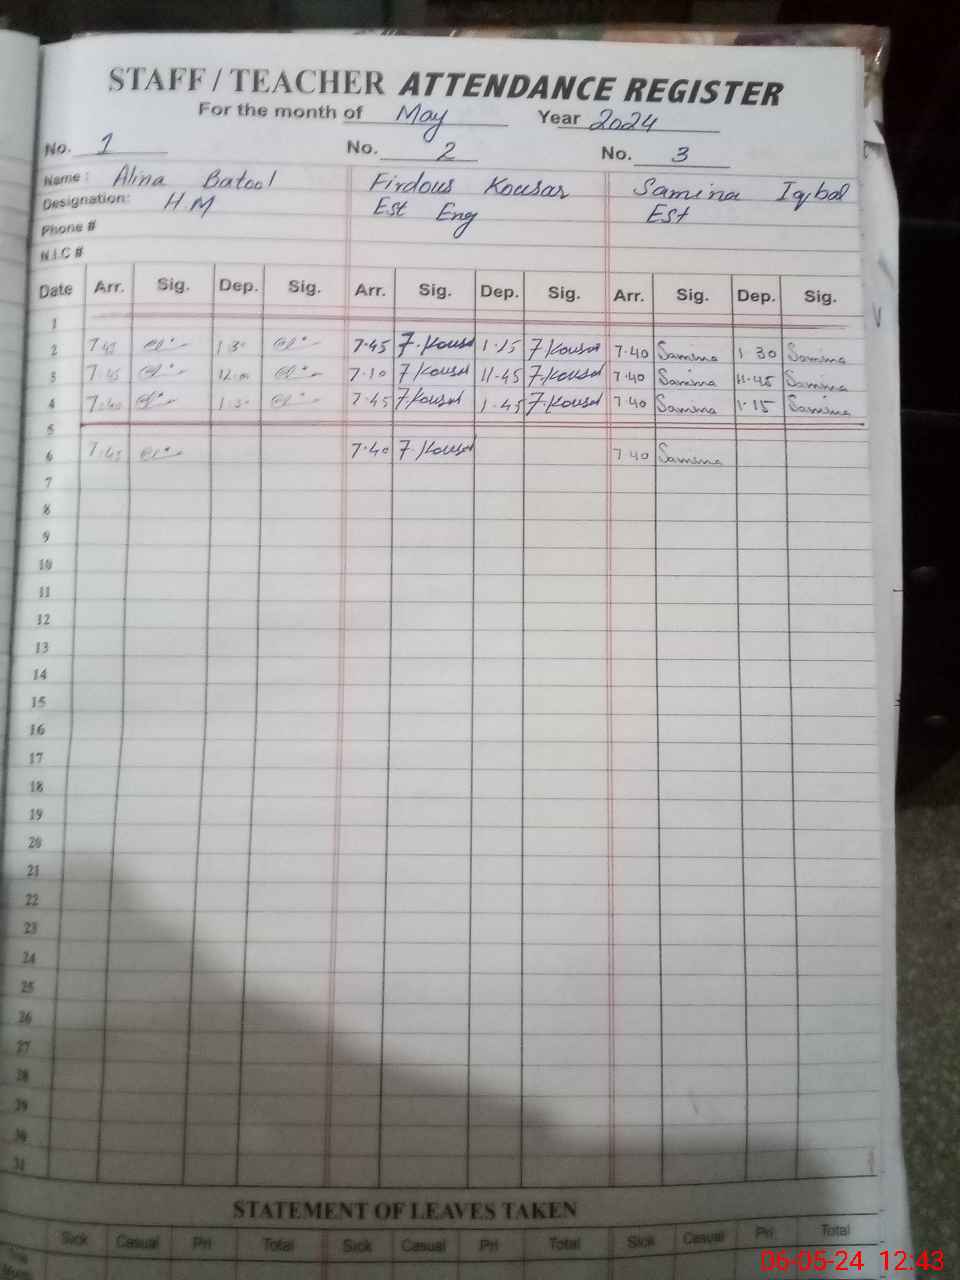 STAFF / TEACHER ATTENDANCE REGISTER
For the month of May Year 2024
No. 1 No. 2 No. 3
Name : Alina Batool Firdous Kousar Samina Iqbal
Designation: H.M Est Eng Est
Phone #
N.I.C #
Date Arr. Sig. Dep. Sig. Arr. Sig. Dep. Sig. Arr. Sig. Dep. Sig.
1
2 7.45 1.30 7.45 F.Kousar 1.15 F Kousar 7.40 Samina 1.30 Samina
3 7.45 7.10 F Kousar 11.45 F.Kousar 7.40 Samina 11.45 Samina
4 7.40 1.30 7.45 F Kousar 1.45 F.Kousar 7.40 Samina 1.15 Samina
5
6 7.45 7.40 F.Kousar 7.40 Samina
7
8
9
10
11
12
13
14
15
16
17
18
19
20
21
22
23
24
25
26
27
28
29
30
31
STATEMENT OF LEAVES TAKEN
Sick Casual Pri Total Sick Casual Pri Total Sick Casual Pri Total
06-05-24 12:43